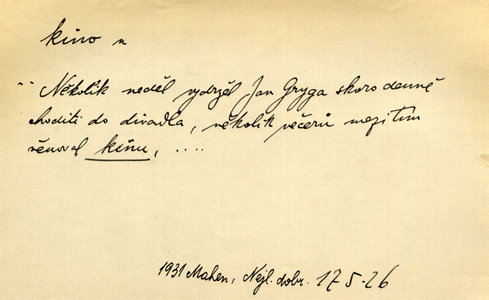 kino n
¨ Několik neděl vydržel Jan Gryga skoro denně
choditi do divadla, několik večerů mezitím
věnoval kinu, ....
1931 Mahen, Nejl. dobr. 175-26